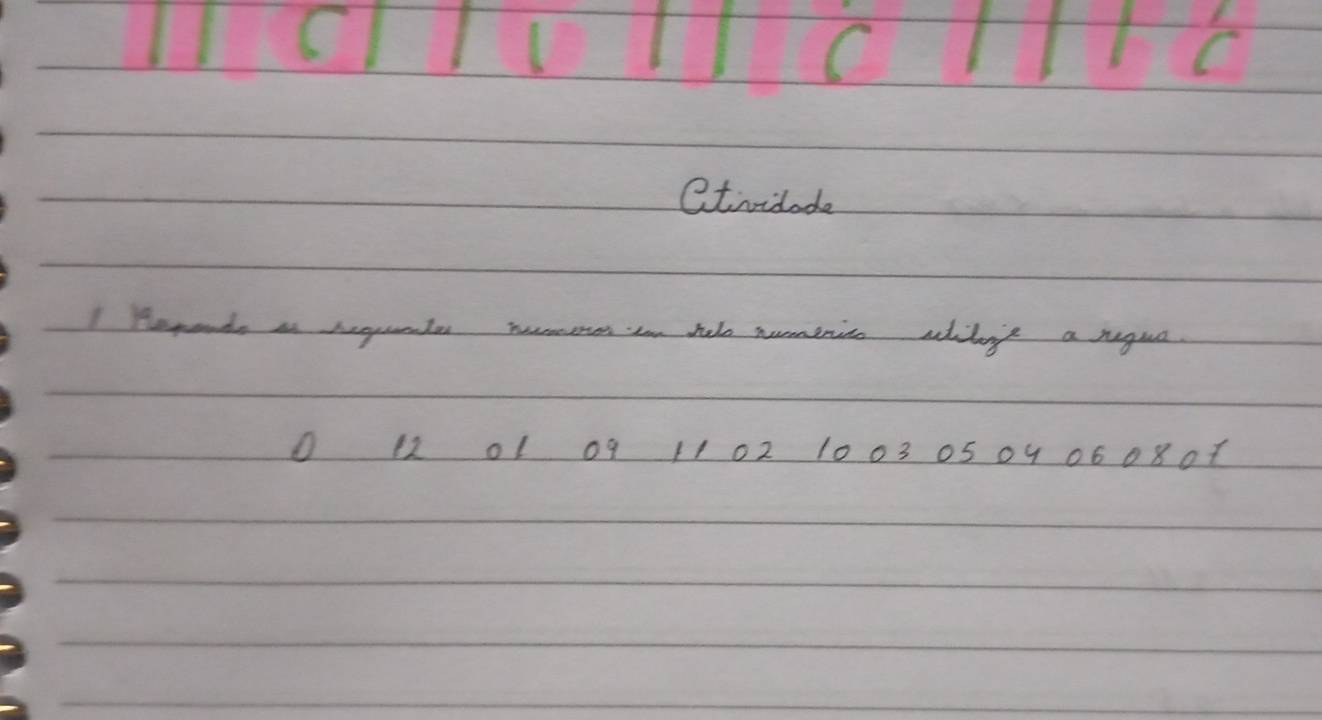 Atividade
1 Responda os seguintes numeros em reta numerica utilize a regua.
0 12 01 09 11 02 10 03 05 04 06 08 07